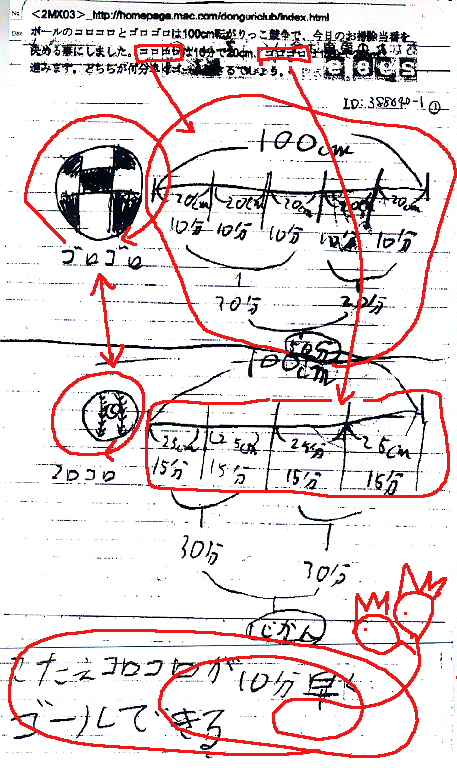 <2MX03> http://homepage.mac.com/donguriclub/index.html
ボールのコロコロとゴロゴロは100cm転がりっこ競争で、今日のお掃除当番を
決める事にしました。コロコロは10分で20cm、ゴロゴロは
進みます。どちらが何分
ID:388640-1 ①
100cm
20cm 20cm 20cm 20cm 20cm
10分 10分 10分 10分 10分
ゴロゴロ
20分
50分
100cm
25cm 25cm 25cm 25cm
15分 15分 15分 15分
コロコロ
30分 30分
1じかん
こたえコロコロが10分早く
ゴールしてできる